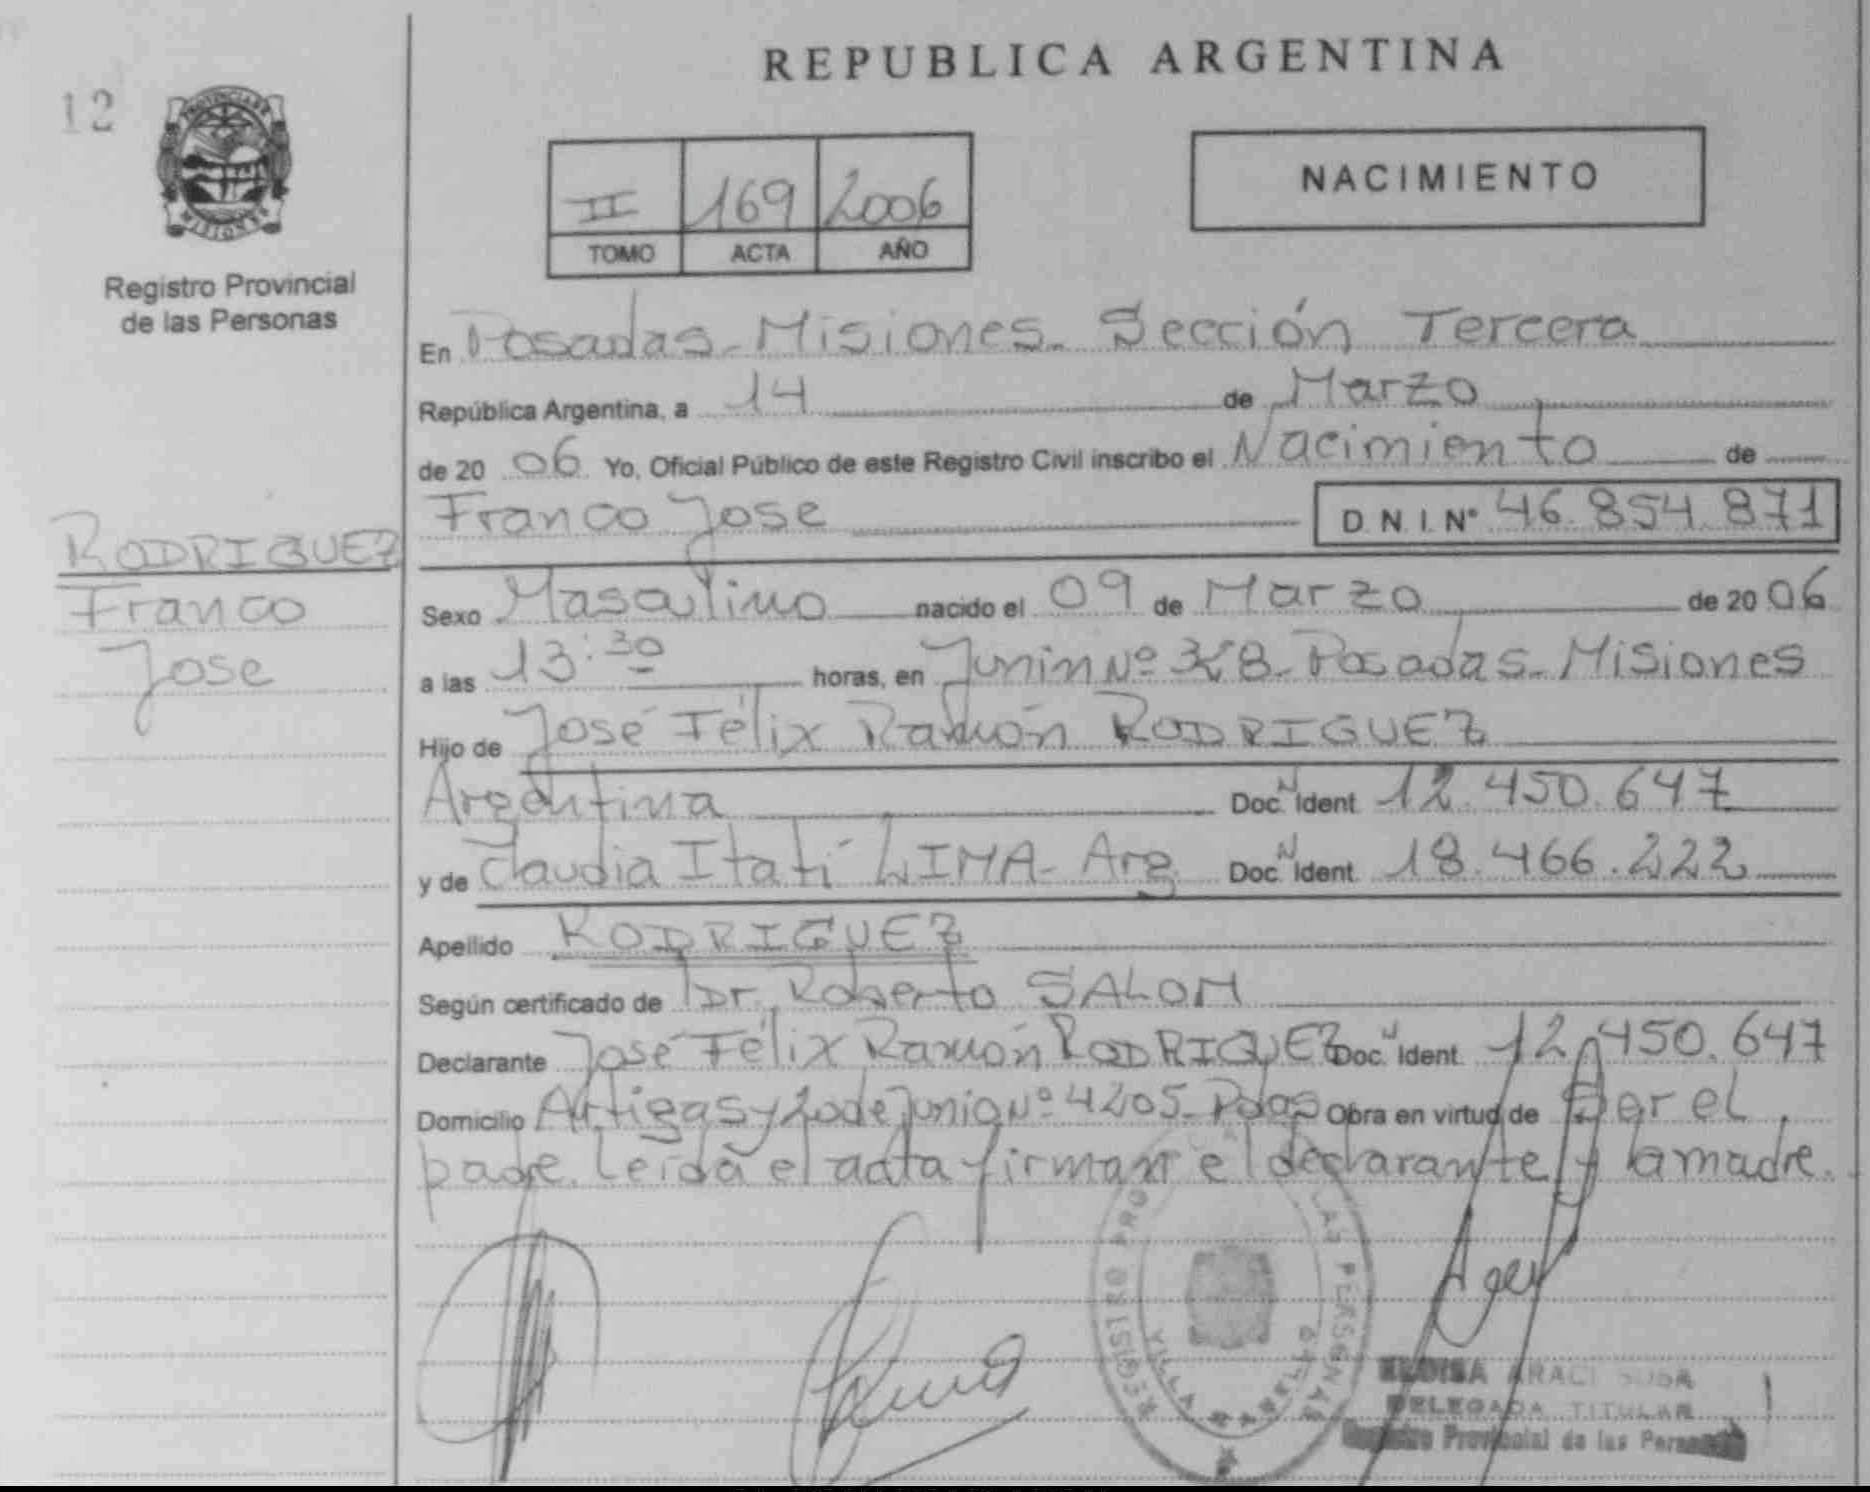 REPUBLICA ARGENTINA
12
PROVINCIA DE
MISIONES
Registro Provincial
de las Personas
II 169 2006
TOMO ACTA AÑO
NACIMIENTO
En Posadas - Misiones - Sección Tercera
República Argentina, a 14 de Marzo
de 20 06 Yo, Oficial Público de este Registro Civil inscribo el Nacimiento de
Franco Jose D.N.I. Nº 46.854.871
RODRIGUEZ
Franco
Jose
Sexo Masculino nacido el 09 de Marzo de 20 06
a las 13:30 horas, en Junin Nº Posadas - Misiones
Hijo de José Félix Ramón RODRIGUEZ
Argentina Doc. N Ident. 12.450.647
y de Claudia Itatí LIMA - Arg Doc. N Ident. 18.466.222
Apellido RODRIGUEZ
Según certificado de Dr. Roberto SALOM
Declarante José Félix Ramón RODRIGUEZ Doc. N Ident. 12.450.647
Domicilio Artigas y 20 de Junio Nº 4205 - Pdas Obra en virtud de Ser el
padre. Leída el acta firman el declarante y la madre.
REGISTRO PRO LAS PERSONAS
VILLA
ARACI SOSA
DELEGADA TITULAR
Registro Provincial de las Personas